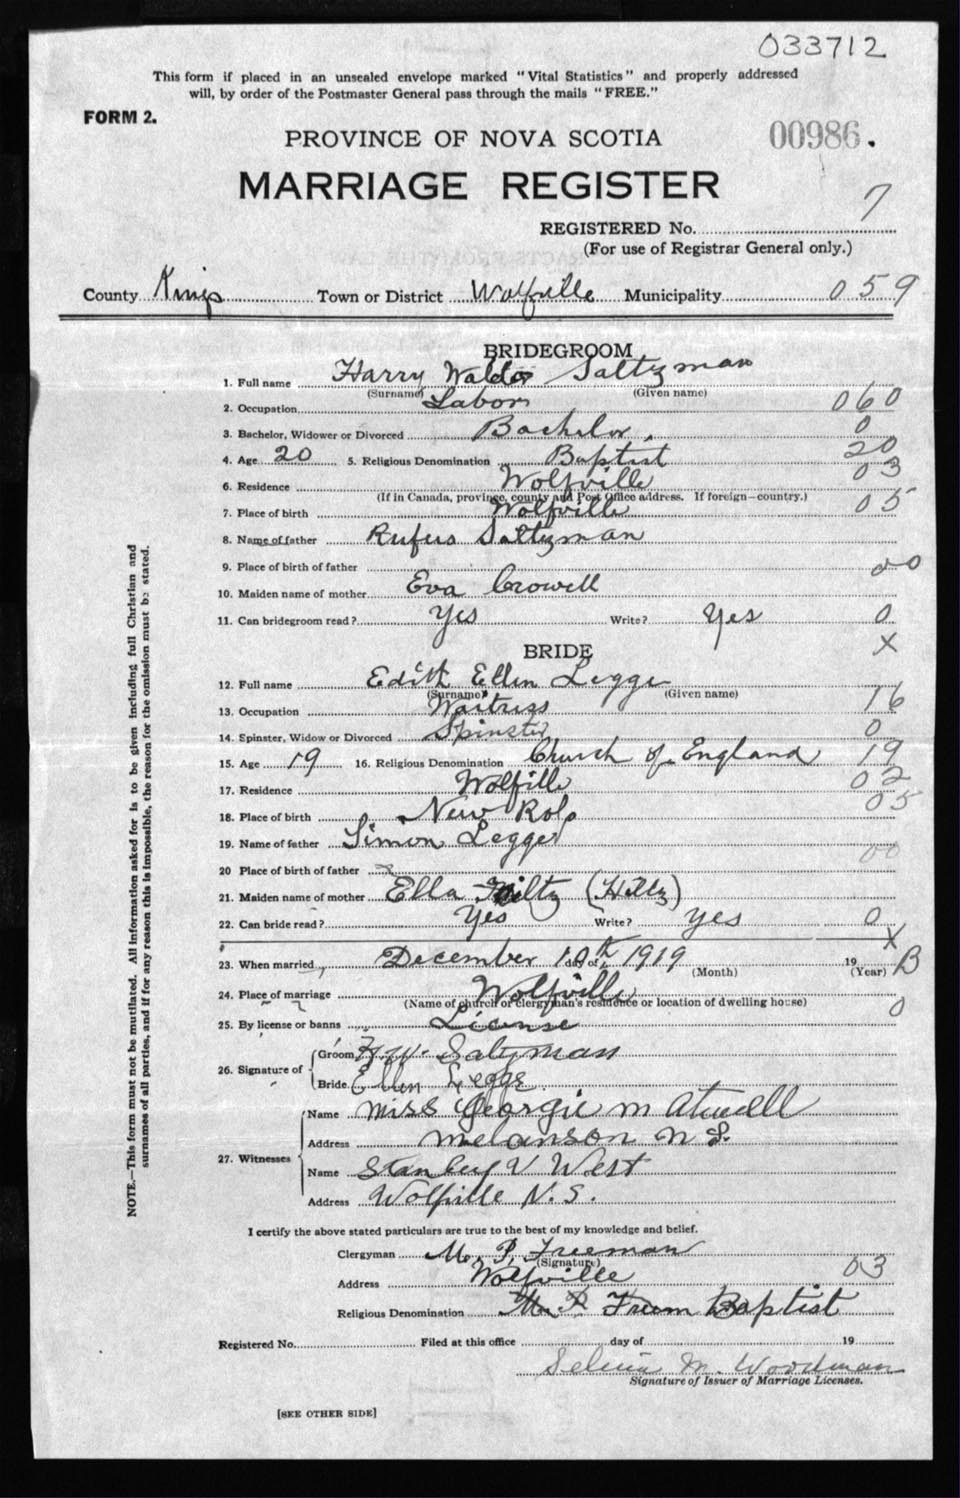 033712
This form if placed in an unsealed envelope marked "Vital Statistics" and properly addressed
will, by order of the Postmaster General pass through the mails "FREE."
FORM 2.
PROVINCE OF NOVA SCOTIA
00986.
MARRIAGE REGISTER
7
REGISTERED No.
(For use of Registrar General only.)
County Kings Town or District Wolfville Municipality 059
BRIDEGROOM
1. Full name Harry Waldo Saltzman
(Surname) (Given name)
2. Occupation Labor 060
3. Bachelor, Widower or Divorced Bachelor. 0
4. Age 20 5. Religious Denomination Baptist 20
6. Residence Wolfville 03
(If in Canada, province, county and Post Office address. If foreign—country.)
7. Place of birth Wolfville 05
8. Name of father Rufus Saltzman
9. Place of birth of father 00
10. Maiden name of mother Eva Crowell
11. Can bridegroom read? Yes Write? Yes 0
X
BRIDE
12. Full name Edith Ellen Legge
(Surname) (Given name)
13. Occupation Waitress 76
14. Spinster, Widow or Divorced Spinster 0
15. Age 19 16. Religious Denomination Church of England 19
17. Residence Wolfville 02
18. Place of birth New Ross 05
19. Name of father Simon Legge
20 Place of birth of father 00
21. Maiden name of mother Ella (Hiltz)
22. Can bride read? Yes Write? Yes 0
X
23. When married December 10th 1919 day of 19 B
(Month) (Year)
24. Place of marriage Wolfville 0
(Name of church or clergyman's residence or location of dwelling house)
25. By license or banns License
26. Signature of Groom H.W. Saltzman
Bride Ellen Legge
27. Witnesses Name Miss Georgie M Atwell
Address Melanson N S.
Name Stanley V West
Address Wolfville N.S.
I certify the above stated particulars are true to the best of my knowledge and belief.
Clergyman M. P. Freeman
(Signature)
Address Wolfville 03
Religious Denomination M. P. Freem Baptist
Registered No. Filed at this office day of 19
Selina M. Woodman
Signature of Issuer of Marriage Licenses.
[SEE OTHER SIDE]
NOTE.—This form must not be mutilated. All information asked for is to be given including full Christian and
surnames of all parties, and if for any reason this is impossible, the reason for the omission must be stated.